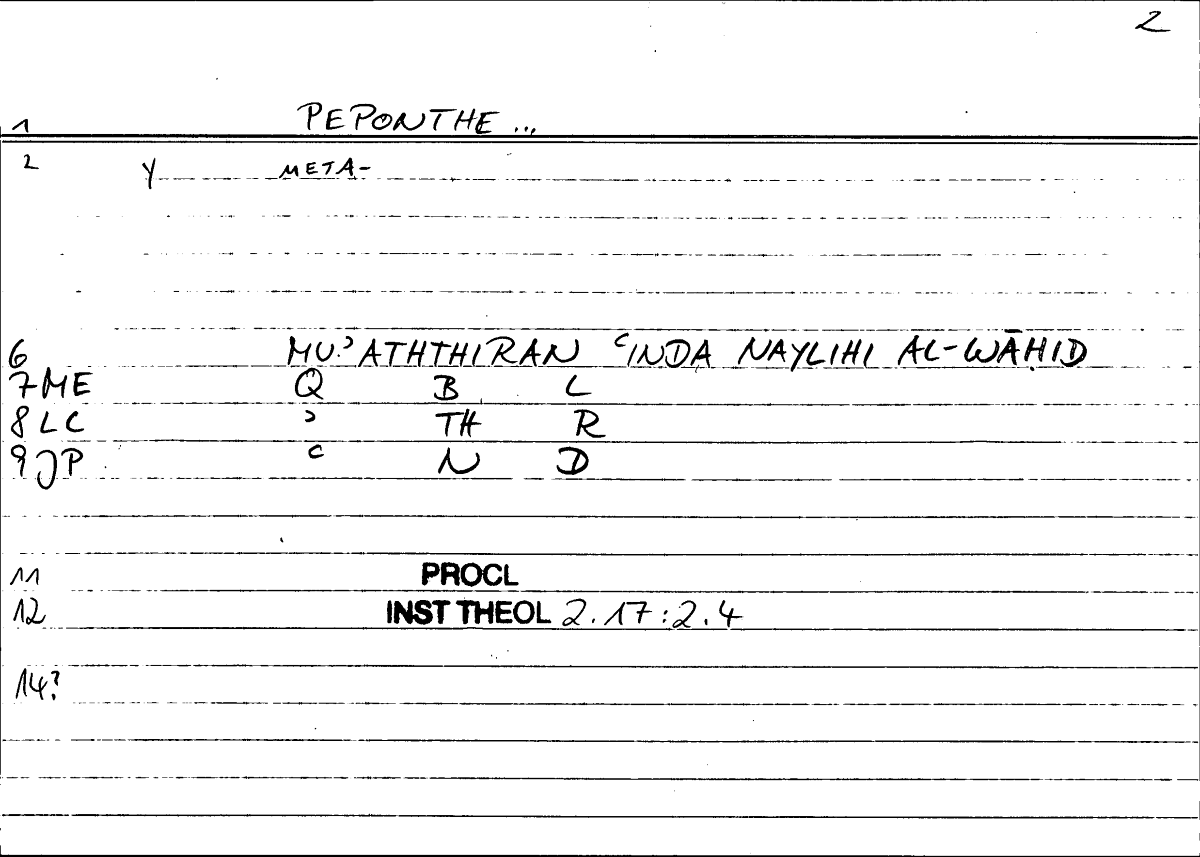 2
1 PEPONTHE ...
2 Y META-
6 MU.ʾAṮHTHIRAN ʿINDA NAYLIHI AL-WĀḤID
7 ME Q B L
8 LC ʾ TH R
9 JP ʿ N D
11 PROCL
12 INST THEOL 2.17:2.4
14?